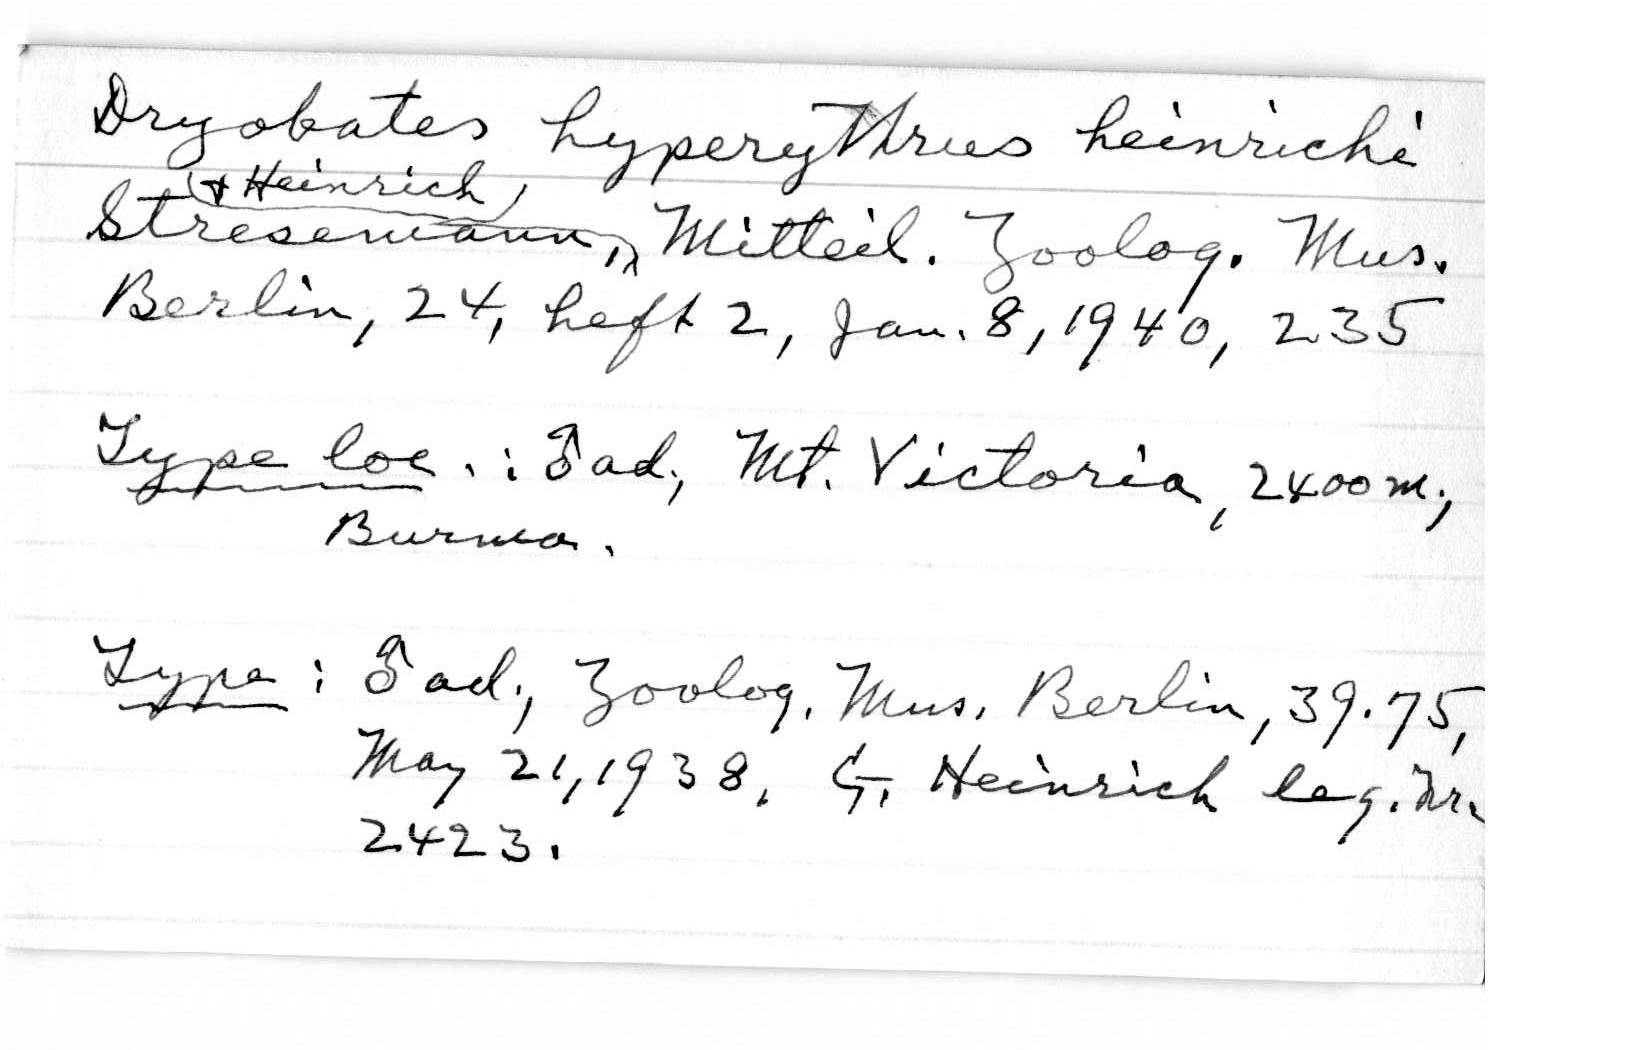 Dryobates hyperythrus heinrichi
& Heinrich,
Stresemann, Mitteil. Zoolog. Mus.
Berlin, 24, heft 2, Jan. 8, 1940, 235
Type loc.: ♂ ad, Mt. Victoria, 2400 m;
Burma.
Type: ♂ ad., Zoolog. Mus. Berlin, 39.75,
May 21, 1938, G. Heinrich leg. Nr.
2423.